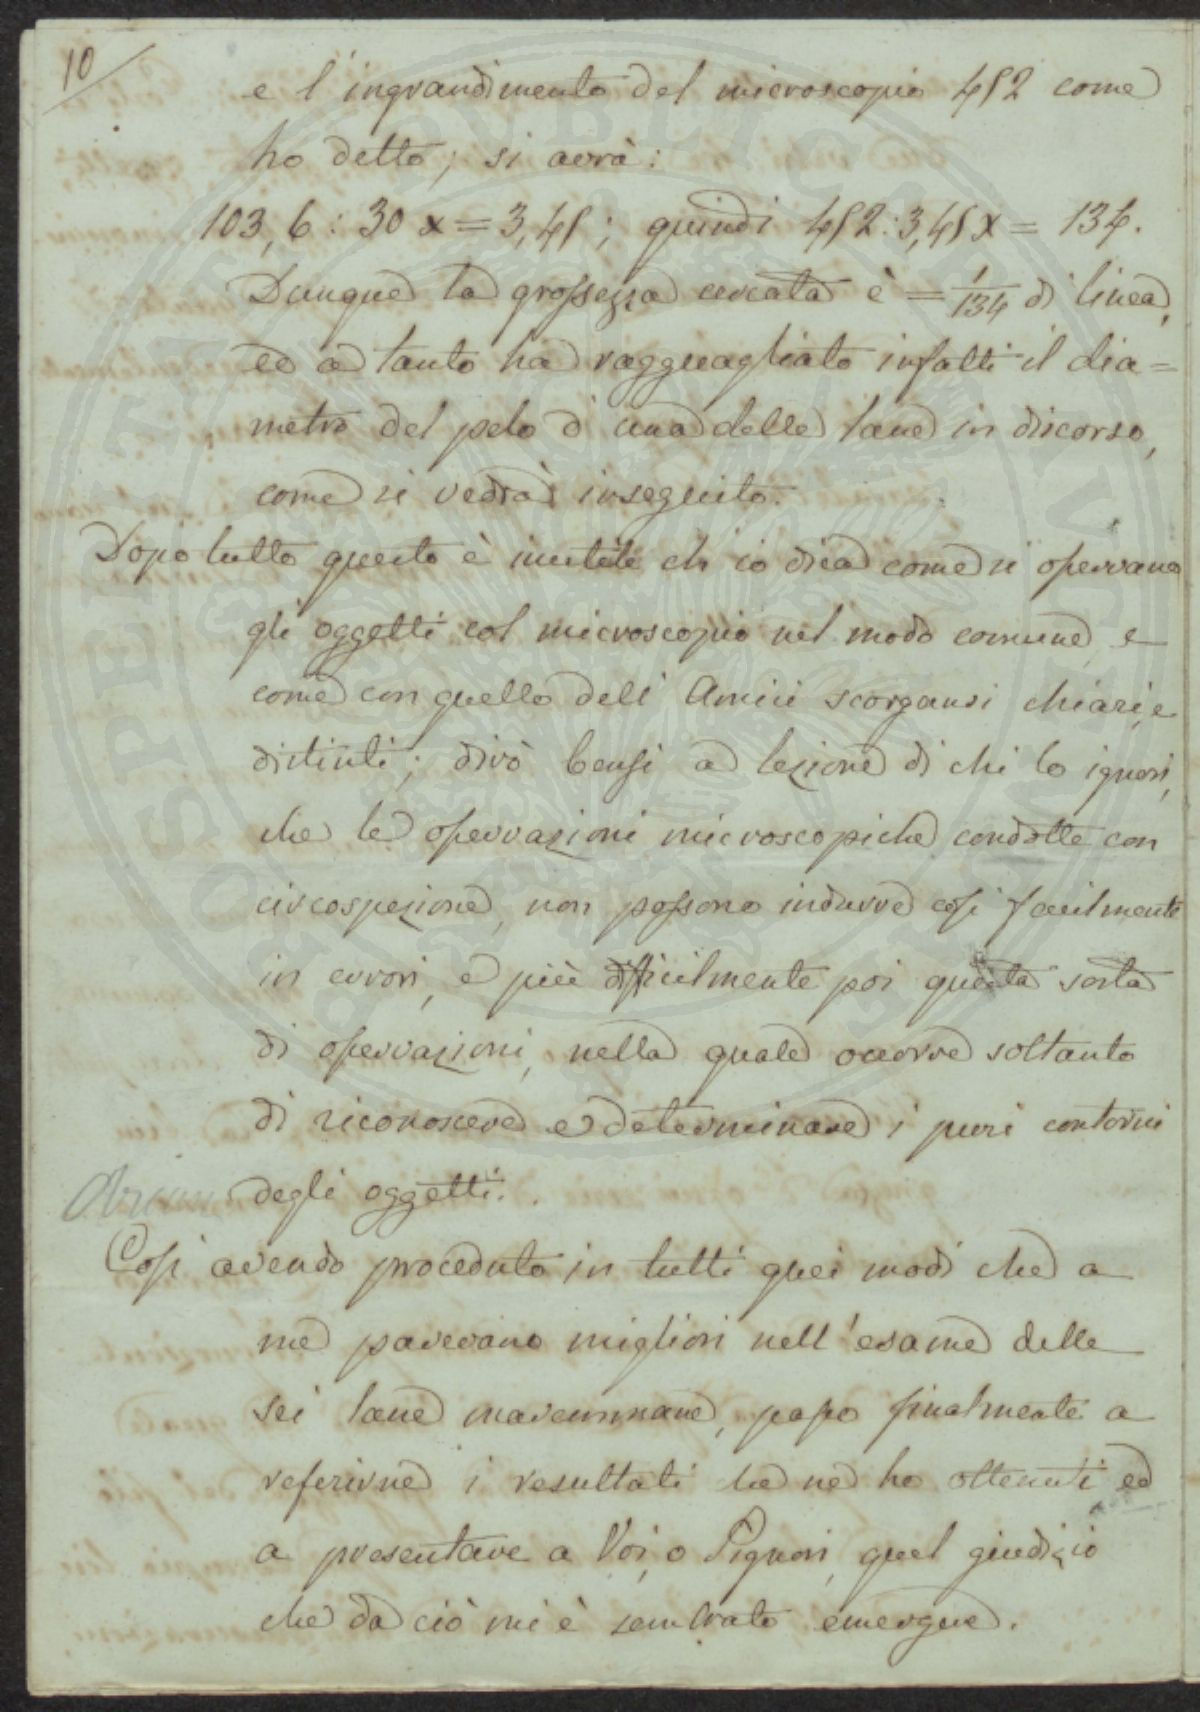 10
e l'ingrandimento del microscopio 452 come
ho detto; si avrà:
103,6 : 30 x = 3,45; quindi 452 : 3,45 x = 134.
Dunque la grossezza cercata è = 1/134 di linea,
ed a tanto ha ragguagliato infatti il dia=
metro del pelo d'una delle lane in discorso,
come si vedrà inseguito.
Dopo tutto questo è inutile ch'io dica come si osservano
gli oggetti col microscopio nel modo comune, e
come con quello dell'Amici scorgansi chiari, e
distinti; dirò bensì a lezione di chi lo ignori,
che le osservazioni microscopiche condotte con
circospezione, non possono indurre così facilmente
in errori, e più difficilmente poi questa sorta
di osservazioni, nella quale occorre soltanto
di riconoscere e determinare i puri contorni
degli oggetti.
Così avendo proceduto in tutti quei modi che a
me parevano migliori nell'esame delle
sei lane maremmane, passo finalmente a
referirne i resultati che ne ho ottenuti ed
a presentare a Voi, o Signori, quel giudizio
che da ciò mi è sembrato emergere.